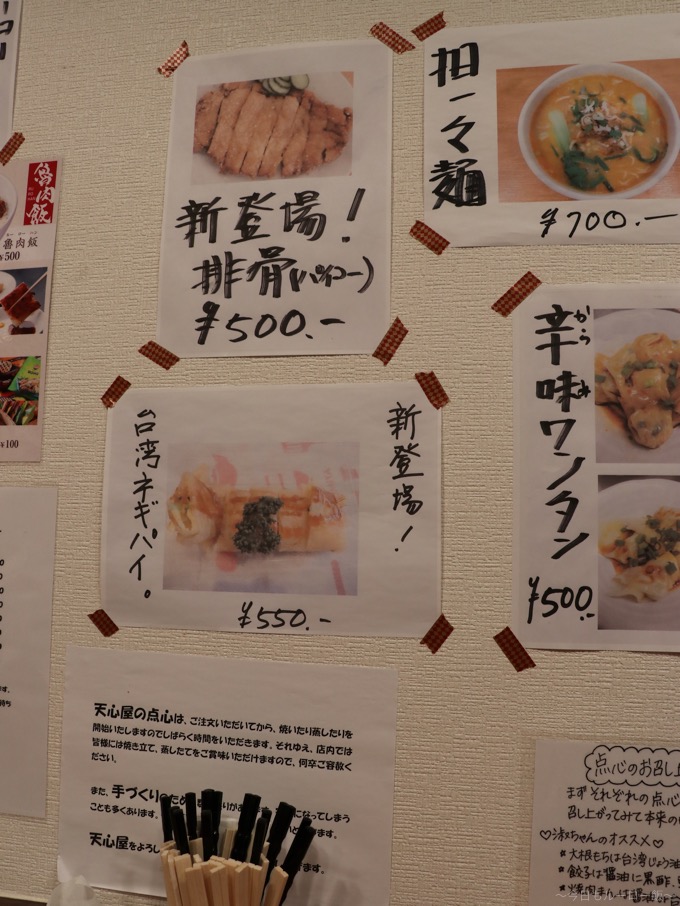 魯肉飯
魯肉飯
¥500
¥100
新登場!
排骨(パイコー)
¥500.-
担々麺
¥700.-
新登場!
台湾ネギパイ。
¥550.-
辛味ワンタン
からみ
¥500.-
天心屋の点心は、ご注文いただいてから、焼いたり蒸したりを
開始いたしますのでしばらく時間をいただきます。それゆえ、店内では
皆様には焼き立て、蒸したてをご賞味いただけますので、何卒ご容赦く
ださい。
また、手づくりのため
になってしまう
ことも多くあります。
天心屋をよろし
点心のお召し上
まずそれぞれの点心
召し上がってみて本来の
♡淑ちゃんのオススメ♡
*大根もちは台湾じょう油
*餃子は醤油に黒酢、
*焼肉まんは醤油